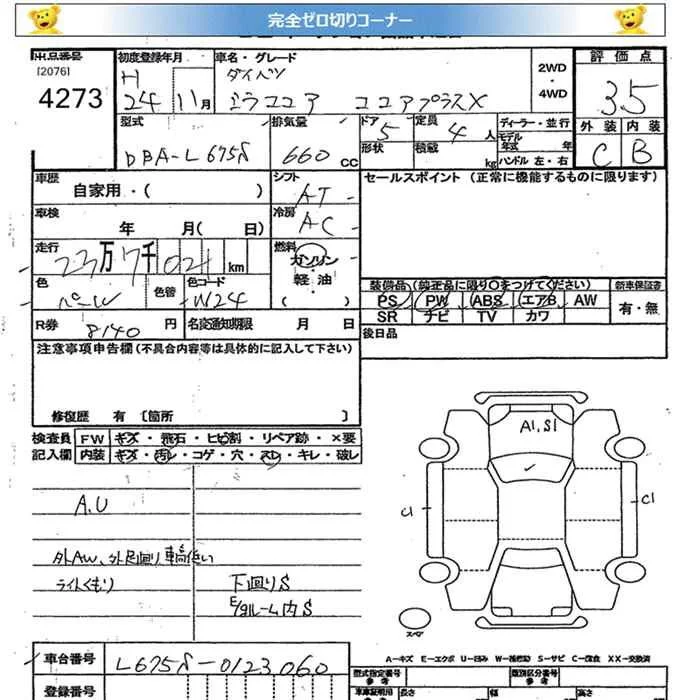 完全ゼロ切りコーナー
出品番号
[2076]
4273
初度登録年月
H
24 11月
車名・グレード
ダイハツ
ミラココア ココアプラスX
2WD
・
4WD
評価点
3.5
外装 内装
C B
型式
DBA-L675S
排気量
660 cc
ドア 5
形状
定員 4人
積載 kg
ディーラー・並行
モデル年式 年
ハンドル 左・右
車歴
自家用・( )
シフト
AT
セールスポイント (正常に機能するものに限ります)
車検
年 月( 日)
冷房
AC
走行
23万7千021km
燃料
ガソリン
・
軽油
( )
色
パールW
色替
色コード
W24
装備品(純正品に限り○をつけてください)
PS PW ABS エアB AW
SR ナビ TV カワ
新車保証書
有・無
R券 8140円
名変通知期限 月 日
後日品
注意事項申告欄(不具合内容等は具体的に記入して下さい)
修復歴 有 [箇所 ]
検査員
記入欄
FW キズ・飛石・ヒビ割・リペア跡・×要
内装 キズ・汚レ・コゲ・穴・スレ・キレ・破レ
A,U
外AW、外足廻り 車高低い
ライトくもり
下廻りS
E/gルーム内S
A1,S1
C1
C1
スペア
A－キズ E－エクボ U－凹み W－補修跡 S－サビ C－腐食 XX－交換済
車台番号
L675S-0123060
登録番号
型式指定番号
参考
類別区分番号
参考
車庫証明用
参考
長さ 幅 高さ